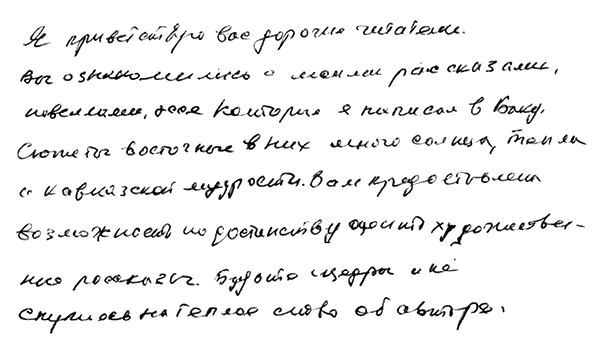 Я приветствую вас дорогие читатели.
Вы ознакомились с моими рассказами,
новеллами, которые я написал в Баку.
Сюжеты восточные в них много солнца, тепла
и кавказской мудрости. Вам предоставлена
возможность по достоинству оценить художествен-
ные рассказы. Будьте щедры и не
скупитесь на теплое слово об авторе.